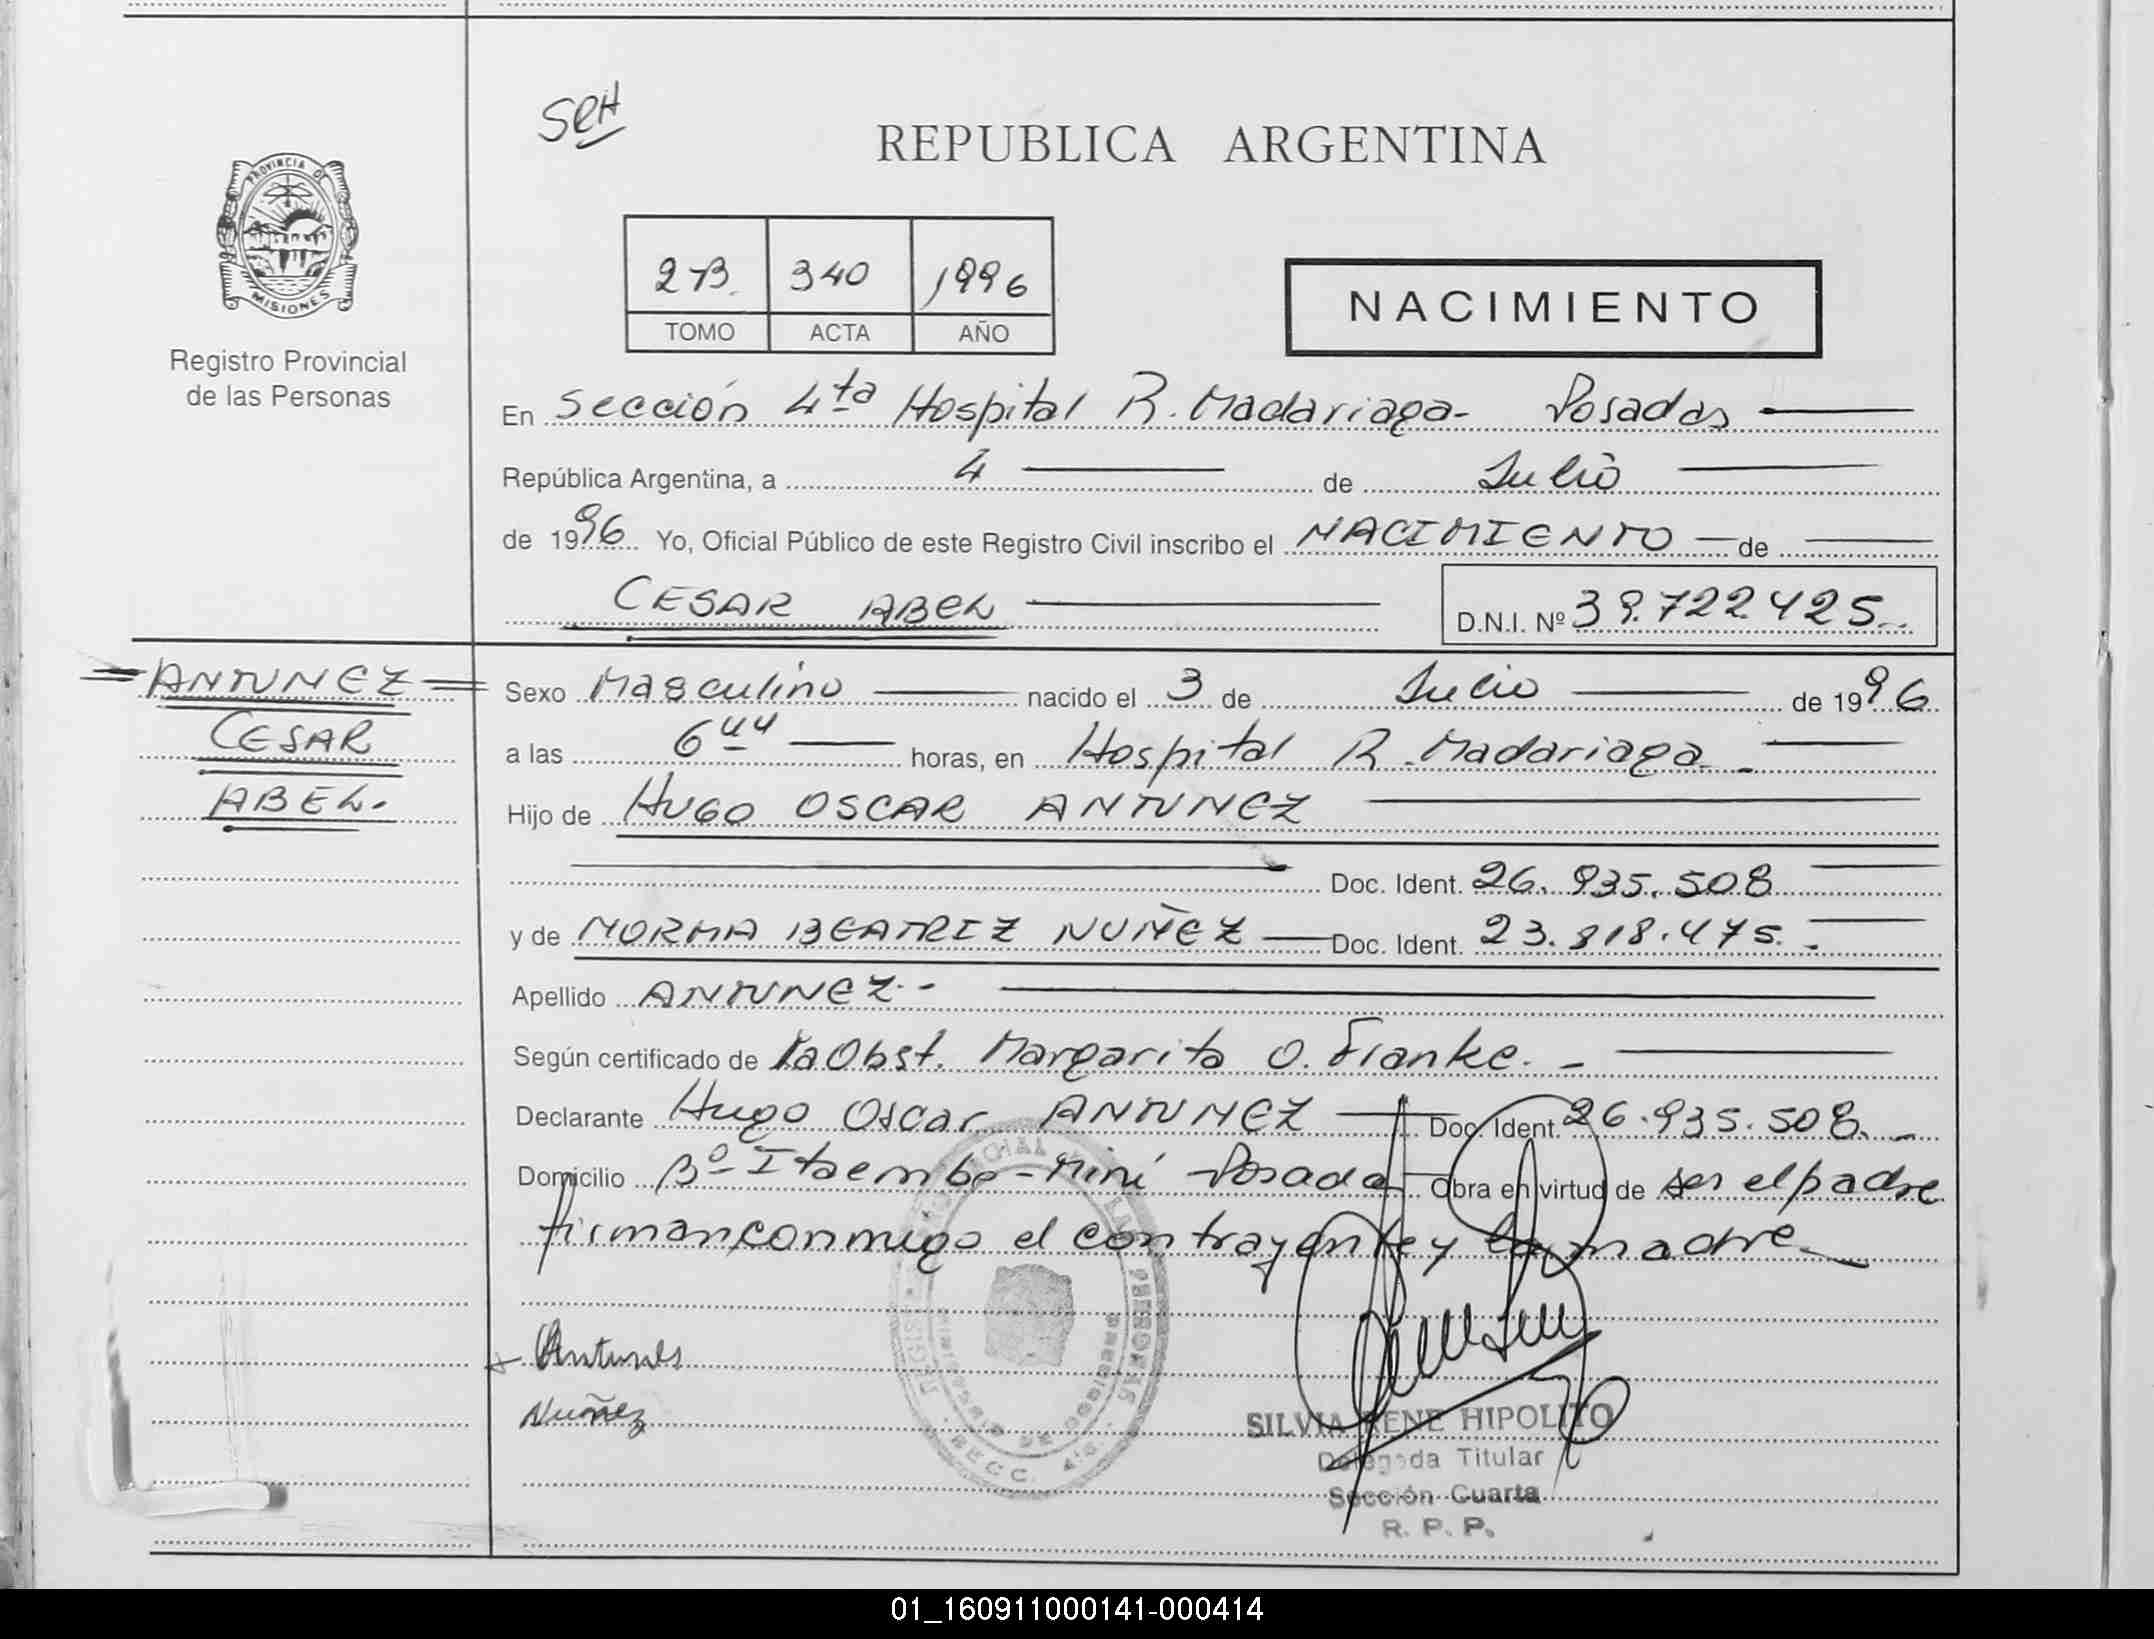 SRH
REPUBLICA ARGENTINA
PROVINCIA DE
MISIONES
Registro Provincial
de las Personas
2-B. 340 1996
TOMO ACTA AÑO
NACIMIENTO
En Sección 4ta Hospital R. Madariaga- Posadas
República Argentina, a 4 de Julio
de 1996 Yo, Oficial Público de este Registro Civil inscribo el NACIMIENTO de
CESAR ABEL D.N.I. Nº 39.722.425
ANTUNEZ
CESAR
ABEL.
Sexo Masculino nacido el 3 de Julio de 1996
a las 6 horas, en Hospital R. Madariaga
Hijo de HUGO OSCAR ANTUNEZ
Doc. Ident. 26.935.508
y de NORMA BEATRIZ NUÑEZ Doc. Ident. 23.818.475.
Apellido ANTUNEZ.-
Según certificado de la Obst. Margarita O. Franke. -
Declarante Hugo Oscar ANTUNEZ Doc. Ident. 26.935.508. -
Domicilio Bº Itaembe-Miní Posadas Obra en virtud de ser el padre
firman conmigo el contrayente y la madre.
Antunes
Nuñez
SILVIA RENE HIPOLITO
Delegada Titular
Sección Cuarta
R. P. P.
SECC. 4ta.
01_160911000141-000414